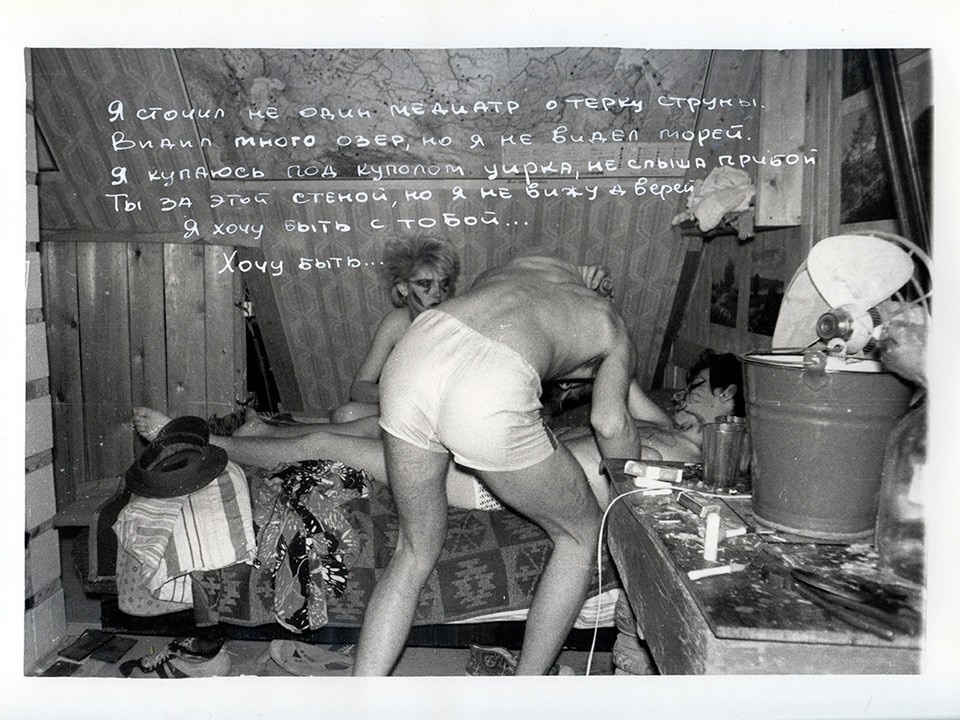 Я сточил не один медиатр о терку струны.
Видил много озер, но я не видел морей.
Я купаюсь под куполом цирка, не слыша прибой
Ты за этой стеной, но я не вижу дверей
Я хочу быть с тобой...
Хочу быть...